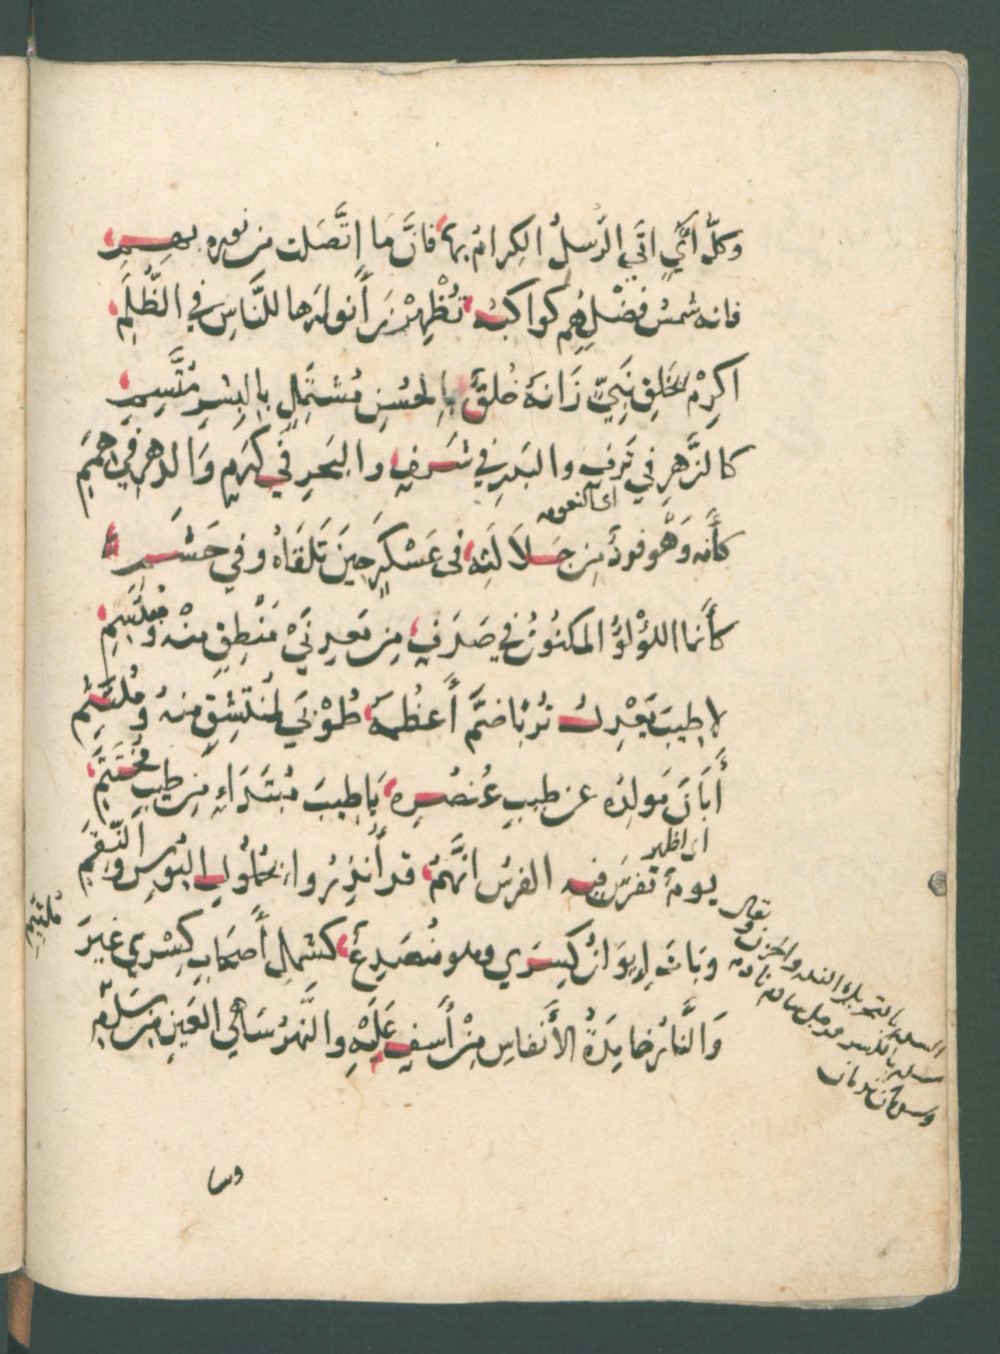 وَكُلُّ آيٍ اَتَى الرُّسلُ الكِرامُ بِها فَانَّمَا اتَّصَلت من نوره بِهِمِ
فانه شمسُ فَضْلٍ هُم كواكبُها تُظْهِرْنَ أَنوارَها للنَّاسِ في الظُّلَمِ
اكرِمْ بخَلقِ نَبِيّ زَانَهُ خُلُقٌ بِالحُسنِ مُشتَمِلٍ بِالبِشرِ مُتَّسِمِ
كالزَّهرِ في تَرفٍ والبَدرِ في شَرَفٍ والبَحرِ في كَرَمٍ وَالدهرِ في هِمَمِ
اى كنعوبه
كأَنه وَهْو فردٌ مِن جَلاَلَتِهِ فى عَسْكَرٍ حِينَ تَلقَاهُ وفي حَشَمِ
كأَنما اللؤْلؤُ المكنُونُ في صَدَفٍ مِن مَعدِنَيْ مَنْطِقٍ مِنْه ومُبْتَسِمِ
لا طِيبَ يَعْدِلُ تُرْبًا ضمَّ أَعظُمَهُ طُوْبَى لِمُنْتَشِقٍ مِنهُ ومُلتَثِمِ
أَبَانَ مَولِدُه عن طِيبِ عُنصُرِه يَا طِيبَ مُبتَدَاءٍ مِن طيبِ مُختَتَمِ
اى اظهر
يومٌ تفرَّسَ فيه الفرسُ انَّهمُ قد أُنذِرُوا بحُلُولِ البُوسِ والنِّقَمِ
وبَاتَ إِيوَانُ كِسرَي وهو مُنصَدِعٌ كشملِ أَصحَابِ كِسْرَي غيرَ
مُلتَئِمِ
وَالنَّارُ خامِدَةُ الأَنفاسِ مِنْ أَسَفٍ عَلَيْهِ والنَّهرُ سَاهي العَينِ مِن سَدَمِ
السدم بالتحريك الندم والحزن ويقال
رجل سادم نادم
وسدمان ندمان
وسا